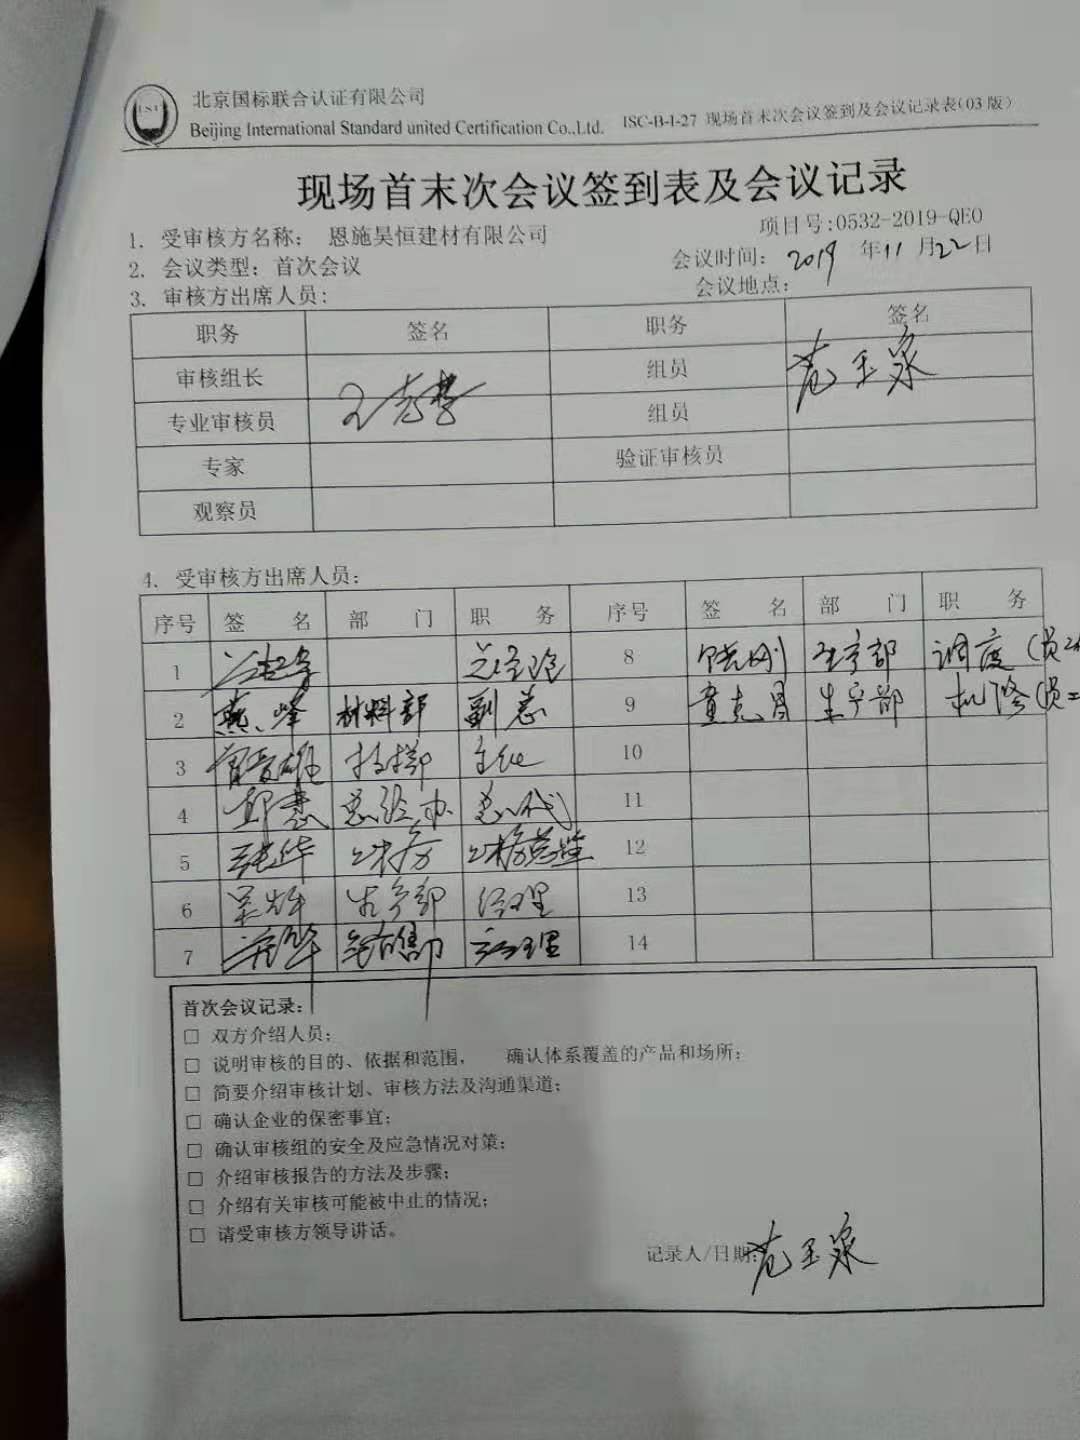 北京国标联合认证有限公司
Beijing International Standard united Certification Co.,Ltd. ISC-B-I-27 现场首末次会议签到及会议记录表(03版)
现场首末次会议签到表及会议记录
项目号:0532-2019-QEO
1. 受审核方名称: 恩施昊恒建材有限公司
2. 会议类型: 首次会议 会议时间: 2019 年11月22日
会议地点:
3. 审核方出席人员:
职务 签名 职务 签名
审核组长 组员 范玉泉
专业审核员 组员
专家 验证审核员
观察员
4. 受审核方出席人员:
序号 签 名 部 门 职 务 序号 签 名 部 门 职 务
1 总经理 8 生产部 调度(员工
2 燕峰 材料部 副总 9 童克昌 生产部 机修(员工
3 主任 10
4 邱慧 总经办 总代 11
5 12
6 生产部 经理 13
7 销售部 经理 14
首次会议记录:
□ 双方介绍人员;
□ 说明审核的目的、依据和范围, 确认体系覆盖的产品和场所;
□ 简要介绍审核计划、审核方法及沟通渠道;
□ 确认企业的保密事宜;
□ 确认审核组的安全及应急情况对策;
□ 介绍审核报告的方法及步骤;
□ 介绍有关审核可能被中止的情况;
□ 请受审核方领导讲话。
记录人/日期: 范玉泉